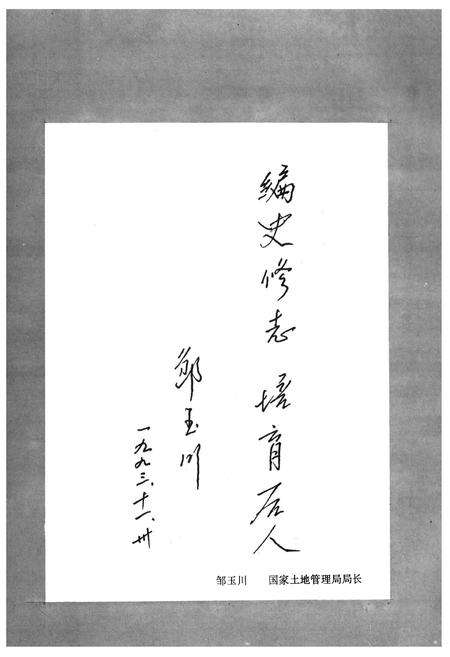 编史修志 培育后人
邹玉川
一九九三、十一、卅
邹玉川 国家土地管理局局长